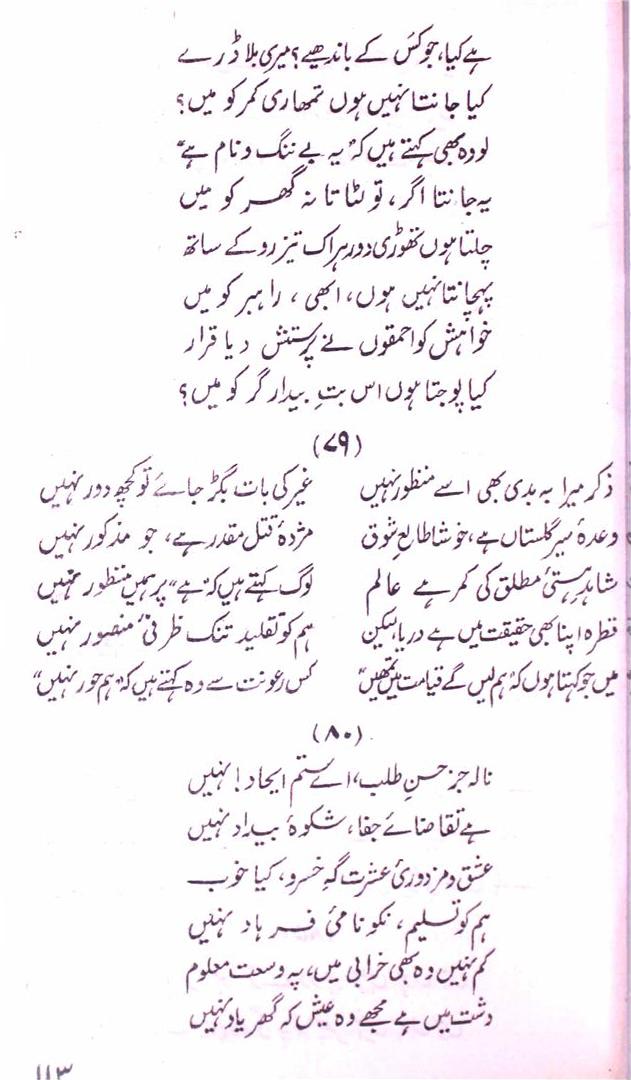 ہے کیا، جو کس کے باندھیے؟ میری بلا ڈرے
کیا جانتا نہیں ہوں تمھاری کمر کو میں؟
لو وہ بھی کہتے ہیں کہ "یہ بے ننگ و نام ہے"
یہ جانتا اگر، تو لٹاتا نہ گھر کو میں
چلتا ہوں تھوڑی دور ہر اک تیز رو کے ساتھ
پہچانتا نہیں ہوں، ابھی، راہبر کو میں
خواہش کو احمقوں نے پرستش دیا قرار
کیا پوجتا ہوں اس بتِ بیدادگر کو میں؟
(۷۹)
ذکر میرا بہ بدی بھی اسے منظور نہیں غیر کی بات بگڑ جائے تو کچھ دور نہیں
وعدۂ سیرِ گلستاں ہے، خوشا طالعِ شوق مژدۂ قتل مقدر ہے، جو مذکور نہیں
شاہدِ ہستیٔ مطلق کی کمر ہے عالم لوگ کہتے ہیں کہ "ہے" پر ہمیں منظور نہیں
قطرہ اپنا بھی حقیقت میں ہے دریا، لیکن ہم کو تقلیدِ تنک ظرفیٔ منصور نہیں
میں جو کہتا ہوں کہ "ہم لیں گے قیامت میں تمھیں" کس رعونت سے وہ کہتے ہیں کہ "ہم حور نہیں"
(۸۰)
نالہ جز حسنِ طلب، اے ستم ایجاد! نہیں
ہے تقاضائے جفا، شکوۂ بیداد نہیں
عشق و مزدوریٔ عشرت گہِ خسرو، کیا خوب
ہم کو تسلیم، نکونامیٔ فرہاد نہیں
کم نہیں وہ بھی خرابی میں، پہ وسعت معلوم
دشت میں ہے مجھے وہ عیش کہ گھر یاد نہیں
۱۱۳